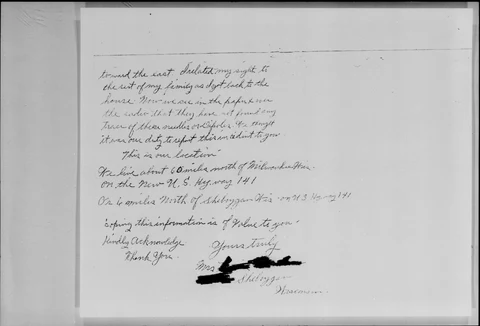 toward the east I related my sight to
the rest of my family as I got back to the
house Now we see in the papers over
the radio that they have not found any
Traces of these missiles We thought
it was our duty to report this incident to you
"This is our location"
We live about 60 miles north of Milwaukee Wis.
On the New U.S. Hyway 141
Or 6 miles North of Sheboygan Wis. on U S Hyway 141
hoping this information is of Value to you"
Kindly Acknowledge Yours truly
Thank You. Mrs
Sheboygan
Wisconsin